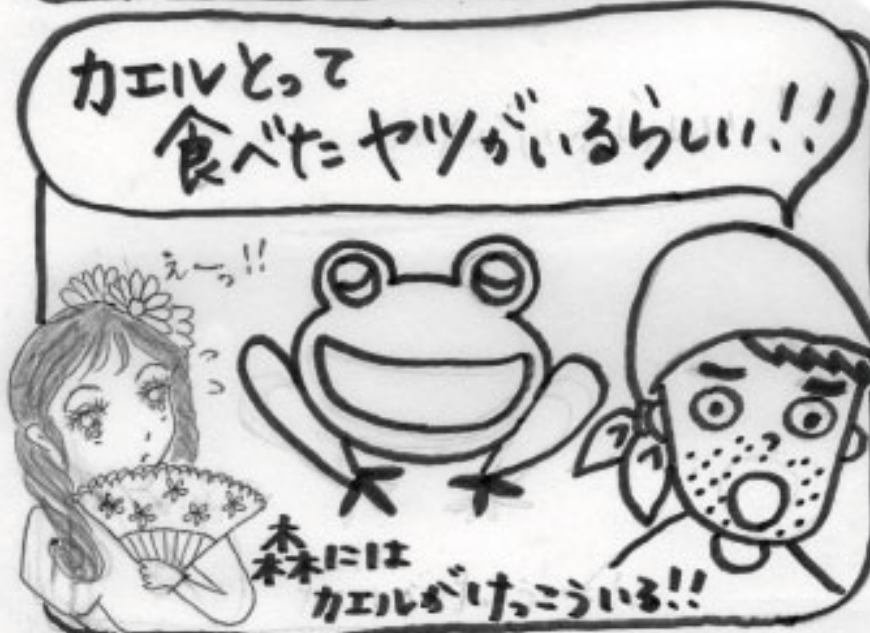 カエルとって
食べたヤツがいるらしい!!
えーっ!!
森には
カエルがけっこういる!!